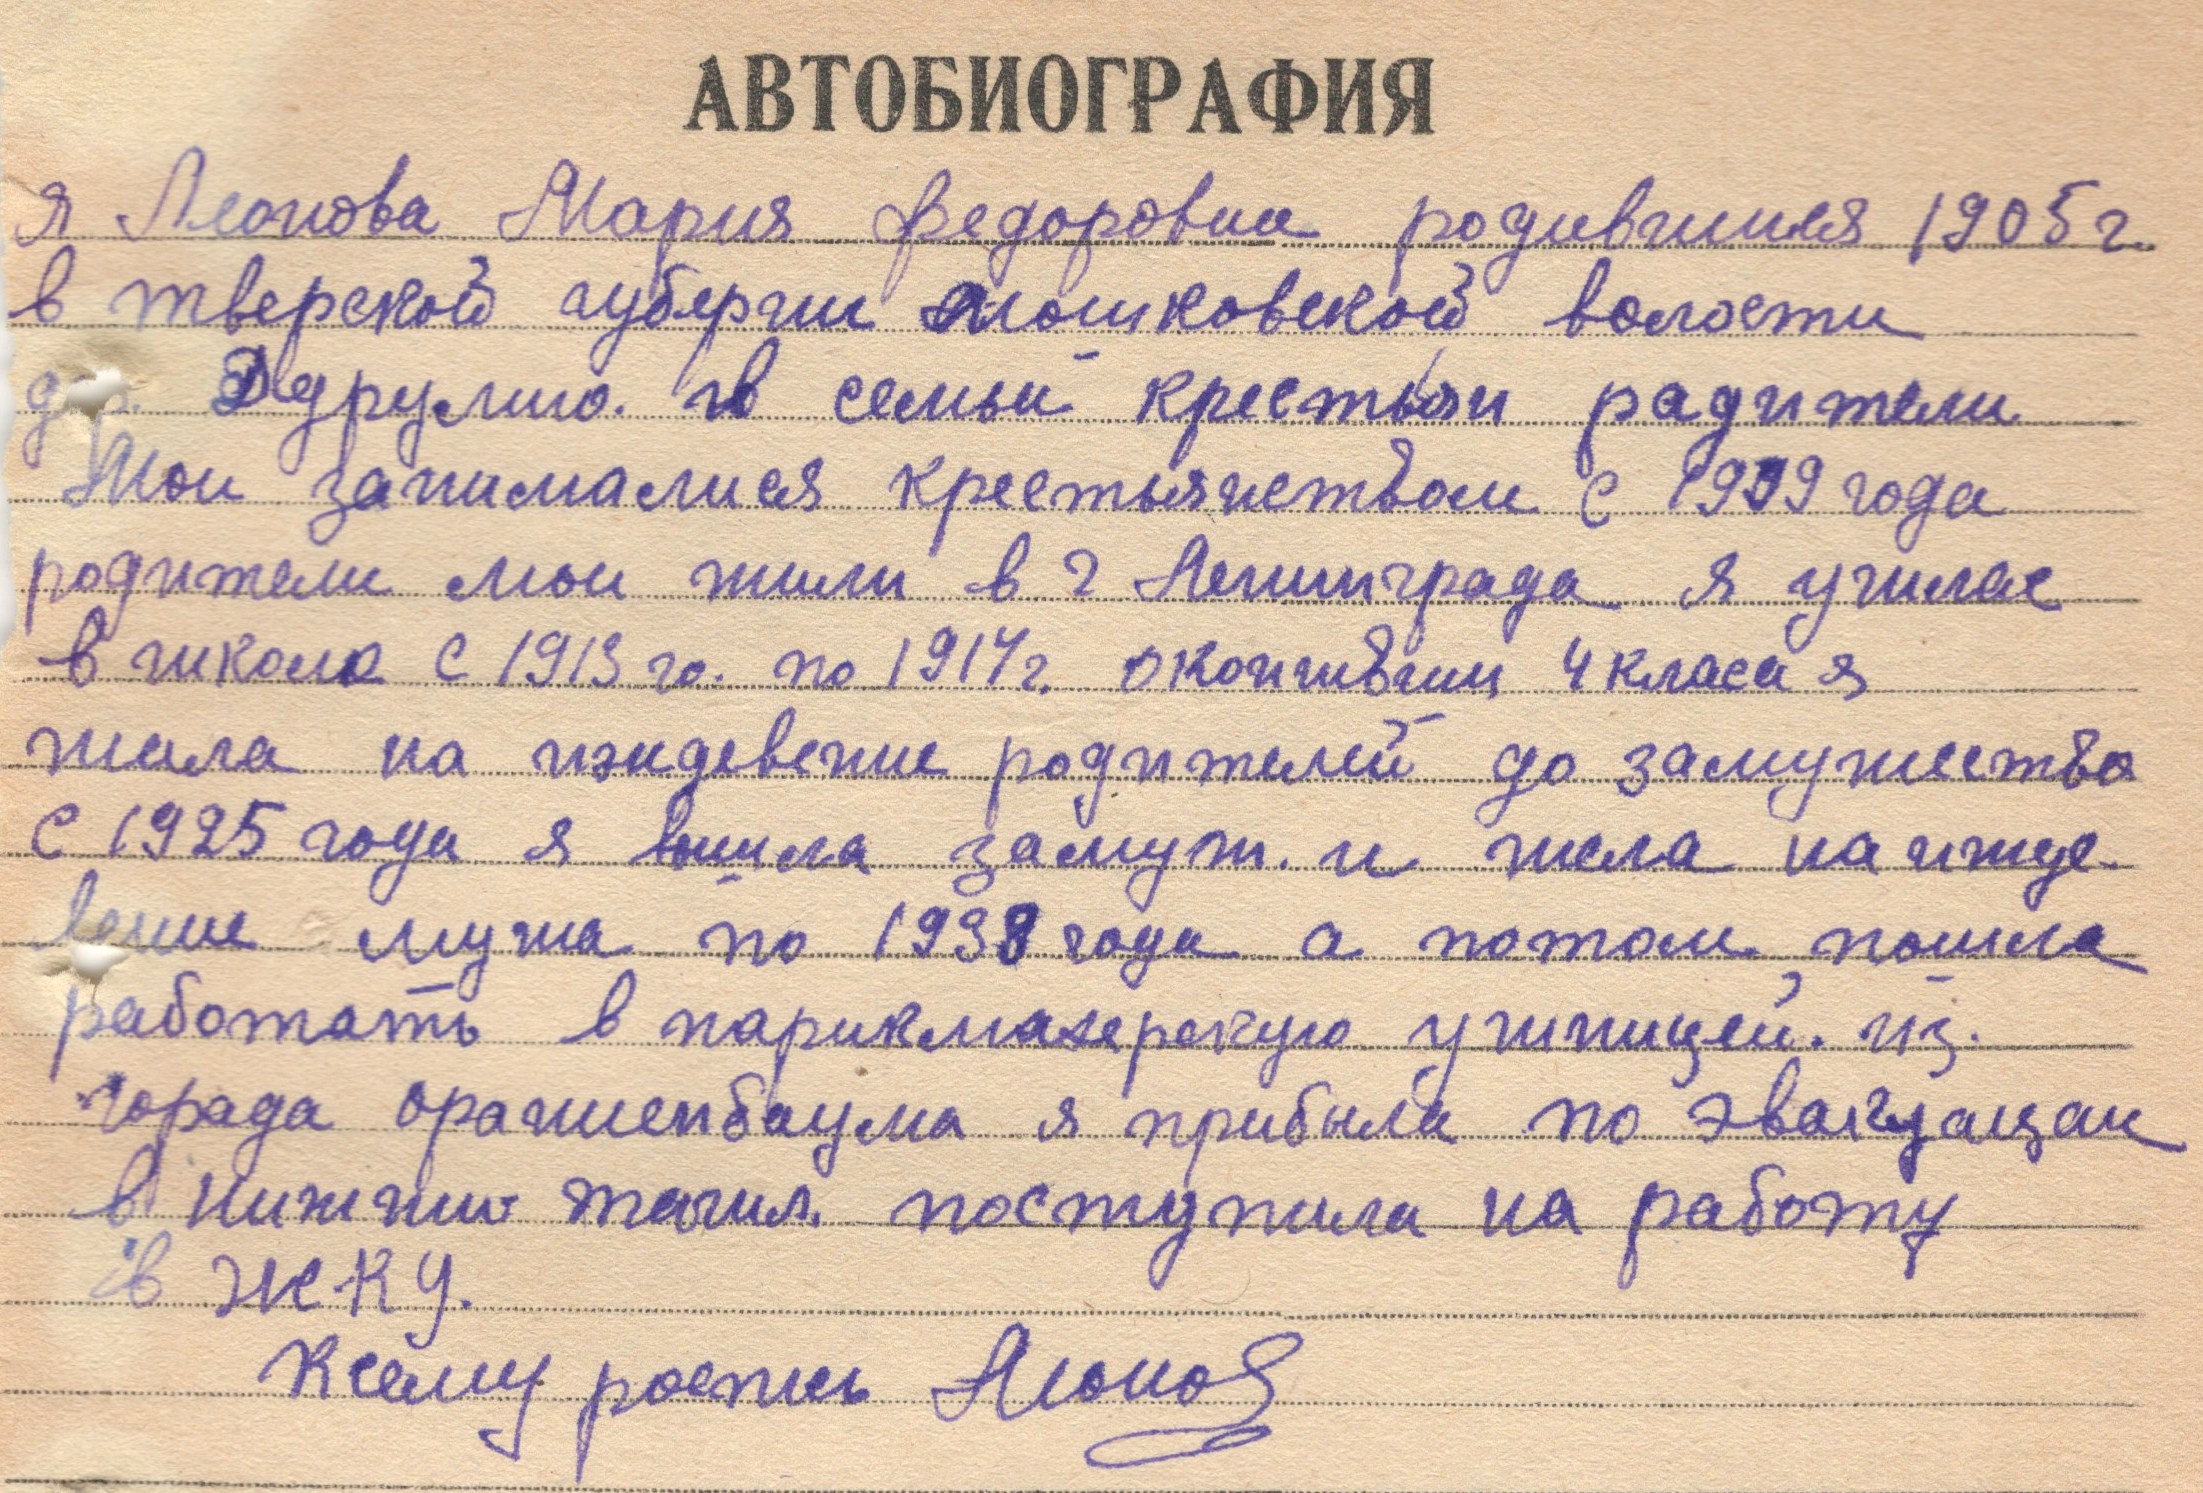 АВТОБИОГРАФИЯ
я Леонова Мария Федоровна родившияся 1905 г.
в тверской губерни Мошковской волости
в семьи крестьян радители
Мои занималися крестьянством с 1939 года
родители мои жили в г Ленинграда я училас
в школа с 1913 го. по 1917 г. окончивши 4 класа я
жила на иждевение родителей до замужества
с 1925 года я вышла замуж. и жела на ижде
вение мужа по 1938 года а потом пошла
работать в парикмахерскую ученицей. из.
горада оражиенбаума я прибыла по эвакуацаи
в нижнию тагил. поступила на работу
в ЖКУ.
К сему роспись Леонов